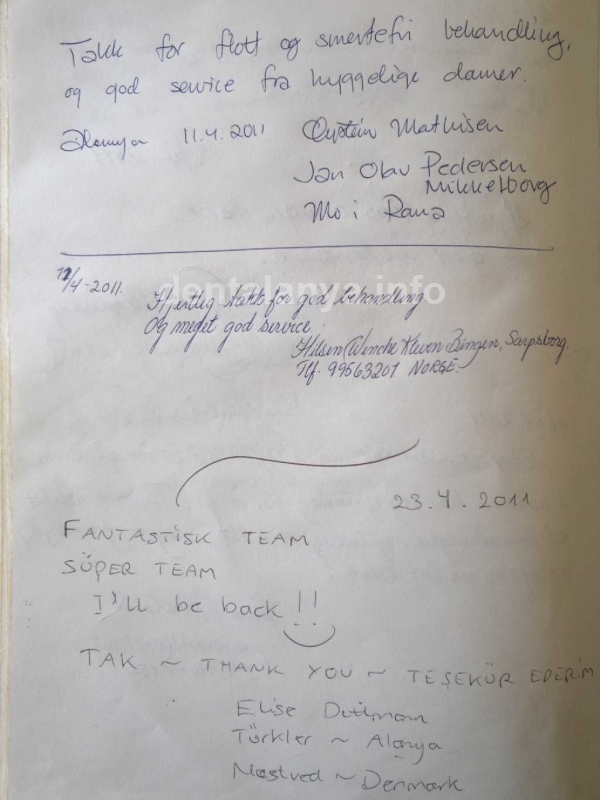 Takk for flott og smertefri behandling,
og god service fra hyggelige damer.
Alanya 11.4.2011 Øystein Mathisen
Jan Olav Pedersen
Mikkelborg
Mo i Rana
12/4-2011.
dentalanya.info
Hjertlig takk for god behandling
Og meget god service.
Hilsen Wenche Bingen, Sarpsborg.
Tlf. 99563201 NORGE.
23.4.2011
FANTASTISK TEAM
SÜPER TEAM
I'll be back!!
TAK ~ THANK YOU ~ TEŞEKÜR EDERIM
Elise
Türkler ~ Alanya
Næstved ~ Denmark